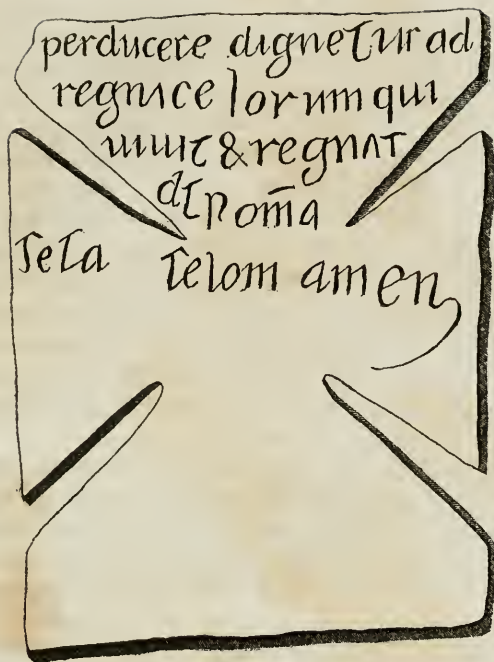 perducere dignetur ad
regni celorum qui
uiuit & regnat
ds p om̄a
sela selom amen